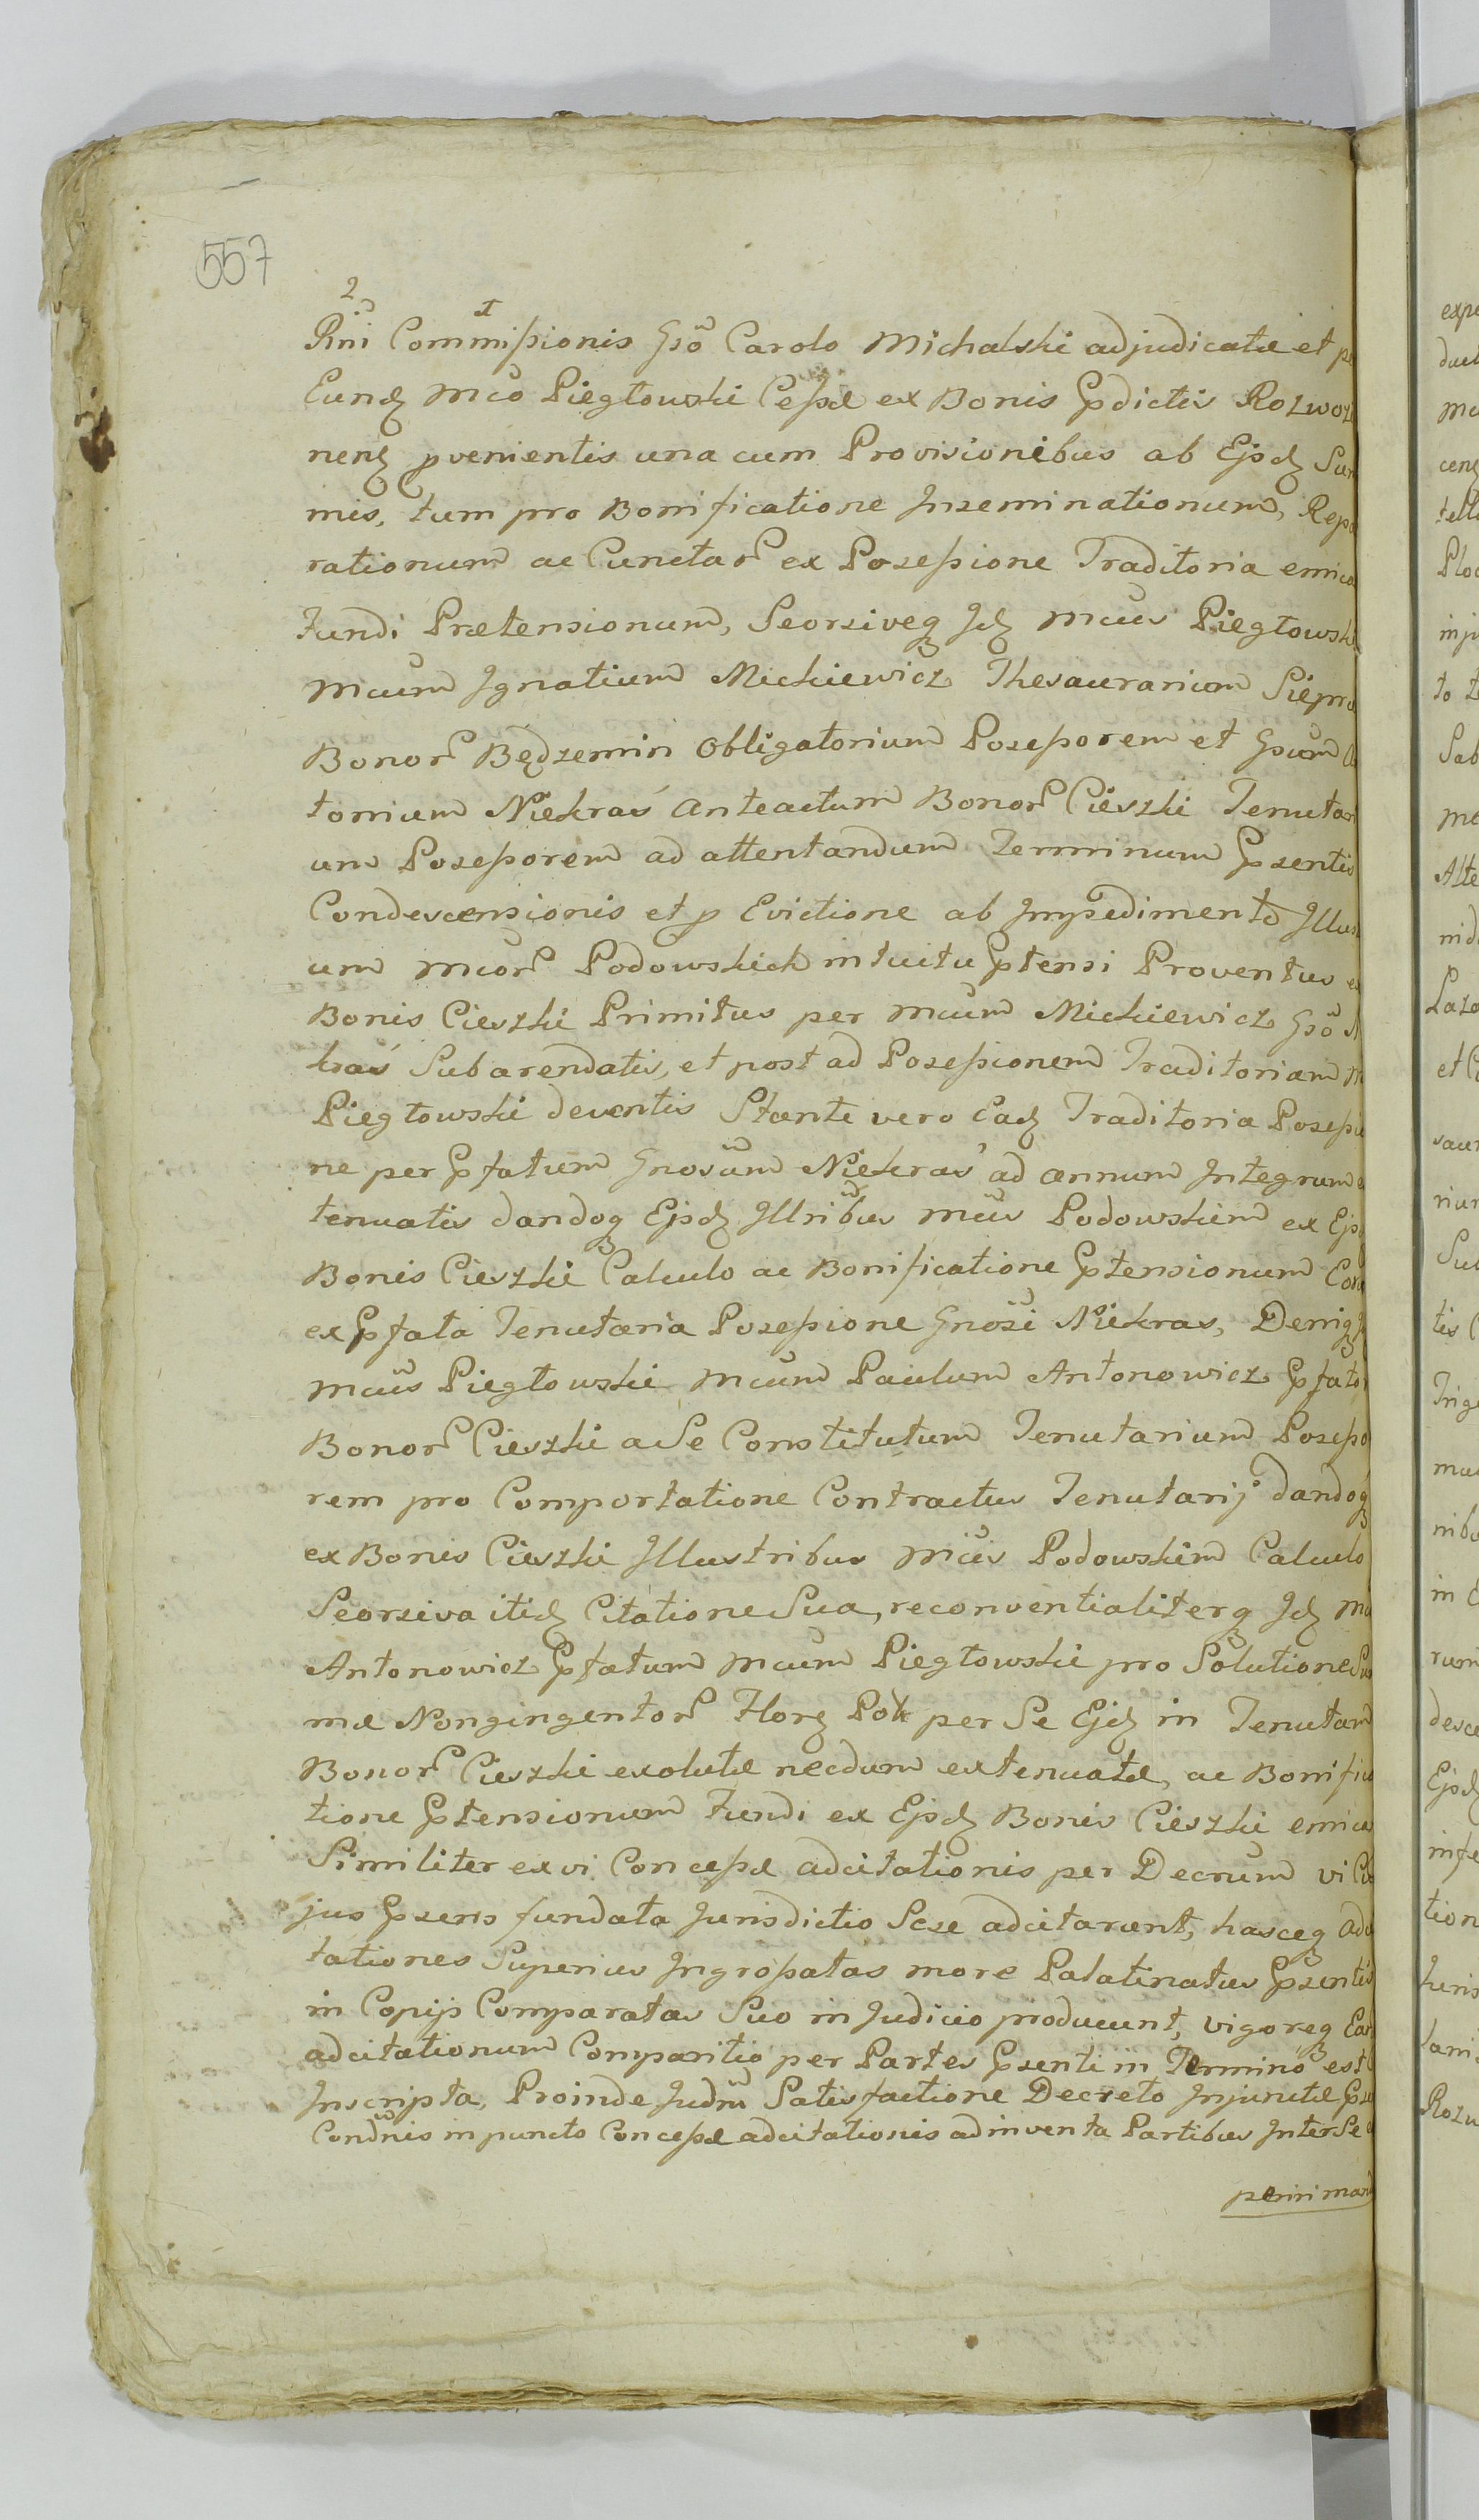 557
2 1
Rnĩ Commissionis Gsõ Carolo Michalski adjudicatæ et
Eundꝫ Mcõ Piegłowski Cessæ ex Bonis Prdictis Rozwoz
nenꝫ ꝓvenientis una cum Provisionibus ab Ejsdꝫ Sum
mis, tum pro Bonificatione Inseminationum, Repa
rationum ac Cunctar ex Possessione Traditoria emica
Fundi Prætensionum, Seorsiveqꝫ Idꝫ Mcus Piegłowski
Mcum Ignatium Mickiewicz Thesaurarium
Bonor Będzemin Obligatorium Possessorem et Gsum
tonium Niekraś Anteactum Bonor Cieszki Tenutari
um Possessorem ad attentandum Terminum Prsentis
Condescensionis et ꝓ Evictione ab Impedimento Illust
um Mcor Podowskich intuitu Prtensi Proventus ex
Bonis Cieszki Primitus per Mcum Mickiewicz Gsõ
kraś Subarendatis, et post ad Possessionem Traditoriam M
Piegłowski deventis Stante vero Eadꝫ Traditoria Possessio
ne per Prfatum Gnosum Niekraś ad annum Integrum
tenuatis dandoqꝫ Ejsdꝫ Illribus Mcis Podowskim ex Ejs
Bonis Cieszki Calculo ac Bonificatione Prtensionum
ex Prfata Tenutaria Possessione Gnosi Niekras, Deniqꝫ
Mcus Piegłowski Mcum Paulum Antonowicz Prfator
Bonor Cieszki a Se Constitutum Tenutarium Possesso
rem pro Comportatione Contractus Tenutarij dandoqꝫ
ex Bonis Cieszki Illustribus Mcis Podowskim Calculo
Seorsiva itidꝫ Citatione Sua, reconventialiterqꝫ Idꝫ
Antonowicz Prfatum Mcum Piegłowski pro Solutione Sum
mæ Nongingentor Florꝫ Pol per Se Ejdꝫ in Tenutam
Bonor Cieszki exolutæ necdum extenuatæ, ac Bonifica
tione Prtensionum Fundi ex Ejsdꝫ Bonis Cieszki emica
Similiter ex vi Concessæ adcitationis per Decrum vi Cu
jus Prsens fundata Jurisdictio Sese adcitarunt, hasceqꝫ Adci
tationes Superius Ingrossatas more Palatinatus Prsentis
in Copijs Comparatas Suo in Judicio producunt, vigoreqꝫ Ear
adcitationum Comparitio per Partes Prsenti in Termino est
Inscripta, Proinde Judm Satisfactione Decreto Injunctæ
Condnis in puncto Concessæ adcitationis adinventa Partibus Inter Se